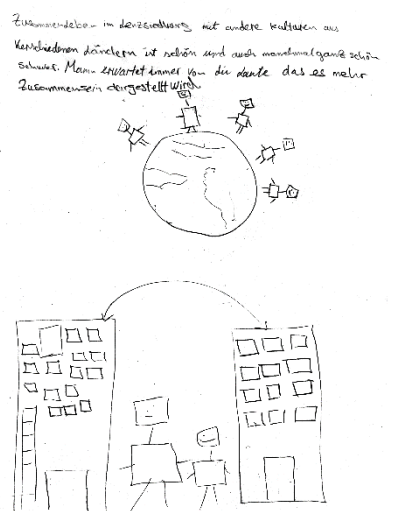 Zusammenleben im lenzsiedlung mit andere kulturen aus
Verschiedenen Ländern ist schön und auch manchmal ganz schön
schwer. Mann erwartet immer von die Leute das es mehr
Zusammensein dargestellt wird